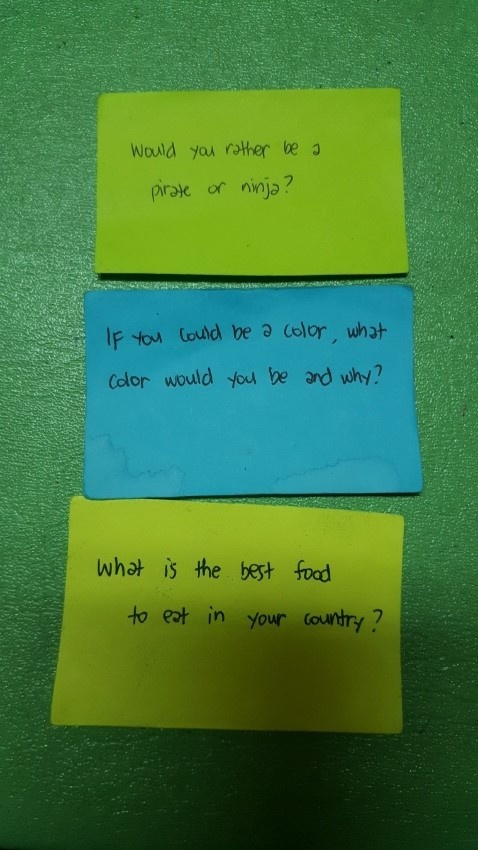 Would you rather be a
pirate or ninja?
If you could be a color, what
color would you be and why?
What is the best food
to eat in your country?